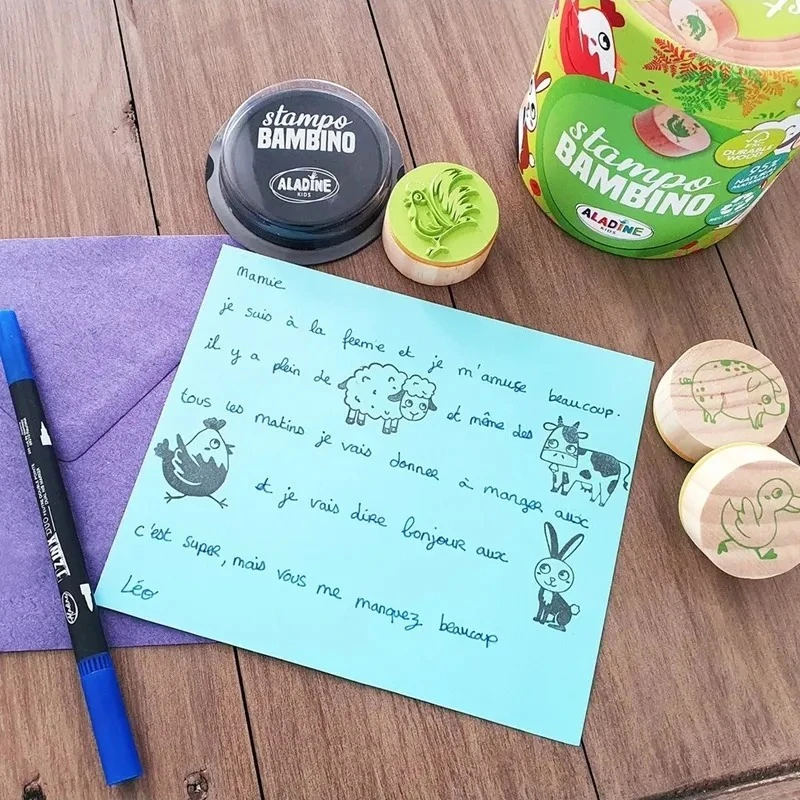 stampo
BAMBINO
ALADINE
KIDS
stampo
BAMBINO
ALADINE
KIDS
FSC
DURABLE
WOOD
95%
NATURAL
Mamie
je suis à la ferme et je m'amuse beaucoup.
il y a plein de et même des
tous les matins je vais donner à manger aux
et je vais dire bonjour aux
c'est super, mais vous me manquez beaucoup
Léo
IZINK